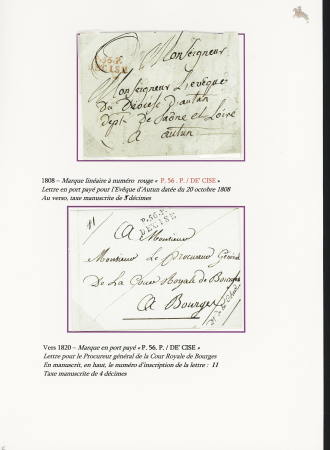 P.56.P.
DECISE
Monseigneur
Monseigneur L'evêque
Du Diocèse d'autun
dept. De Saône et Loire
a autun
1808 – Marque linéaire à numéro rouge « P. 56 . P. / DE' CISE »
Lettre en port payé pour l'Evêque d'Autun datée du 20 octobre 1808
Au verso, taxe manuscrite de 3 décimes
11
P.56.P.
DECISE
A Monsieur
Monsieur Le Procureur Général
De La Cour Royale de Bourges
A Bourges
Vers 1820 – Marque en port payé « P. 56. P. / DE' CISE »
Lettre pour le Procureur général de la Cour Royale de Bourges
En manuscrit, en haut, le numéro d'inscription de la lettre : 11
Taxe manuscrite de 4 décimes